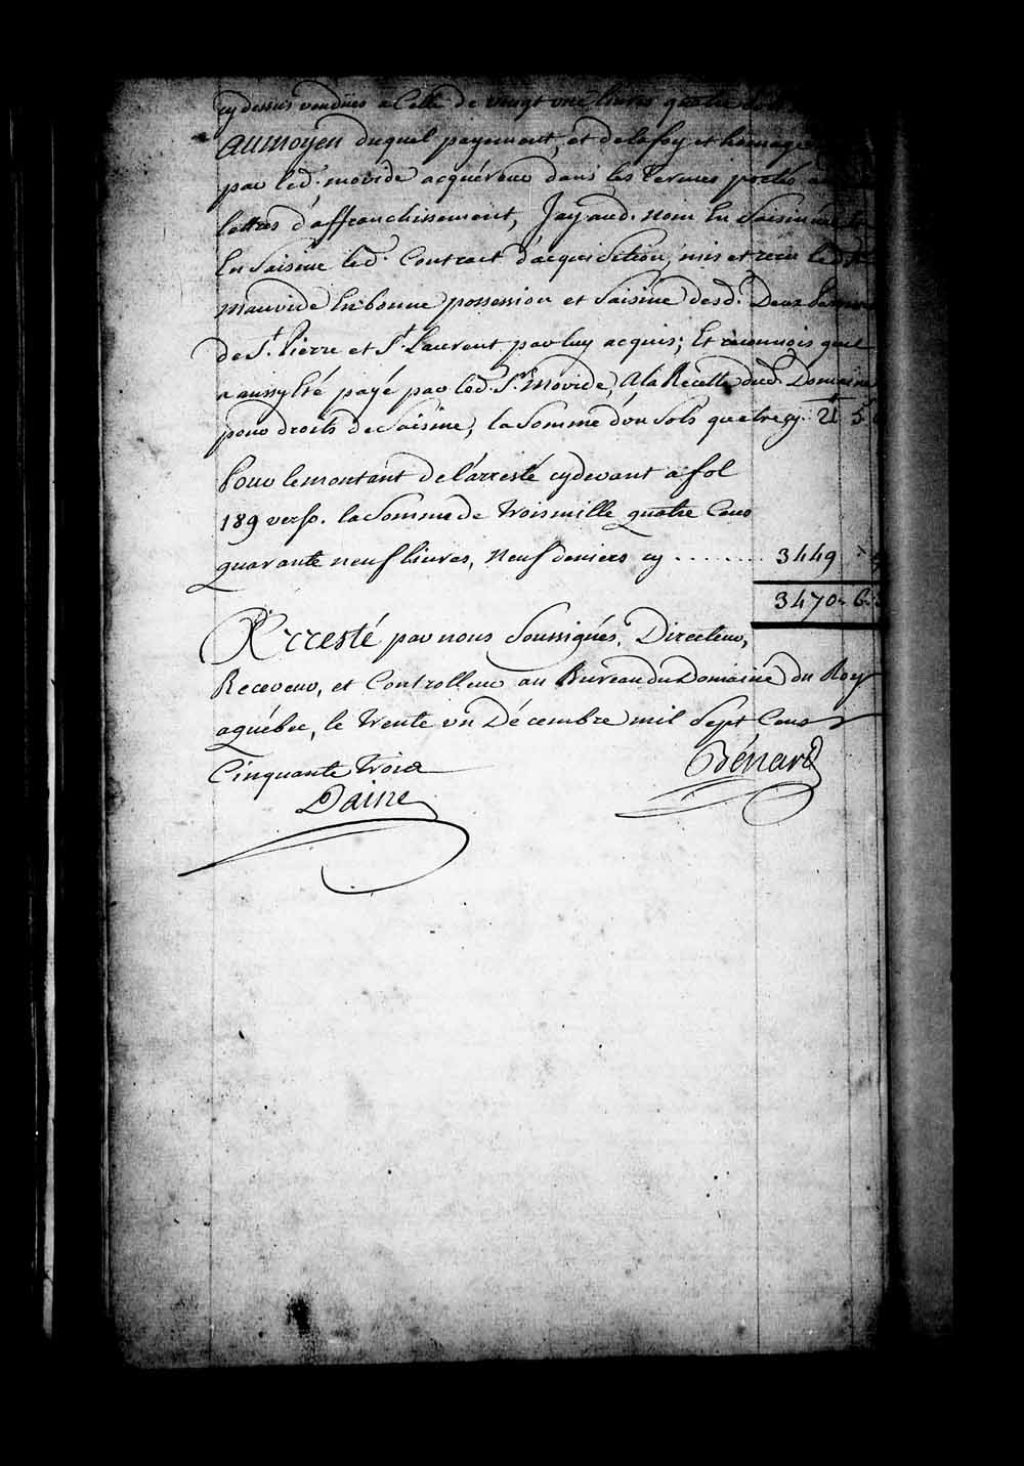 cy dessus vendües a Celle de vingt une livres quatre sols
Au moyen duquel payement, et de la foy et hômage
par led. movide acquéreur dans les termes portés
lettres d'affranchissement, Jay aud. nom En Saisiné
En Saisine led. Contract d'acquisition, mis et reçu led. Sr
Mauvide En bonne possession et Saisine desd. Deux
de St. Pierre et St. Laurent par luy acquis; Et reconnois quil
a aussy Eté payé par led. Sr. Movide, A la Recette dud. Domaine
pour droits de Saisine, la Somme d'un Sols quatre cy. 21 5
Pour le montant de l'arresté cy devant a fol
189 verso. la Somme de Trois mille quatre Cens
quarante neuf livres, neuf deniers cy ....... 3449
3470. 6.
Arresté par nous Soussignés, Directeur,
Receveur, et Controlleur au Bureau du Domaine du Roy
a québec, le Trente un Décembre mil Sept Cens
Cinquante Trois
Bénard
Daine